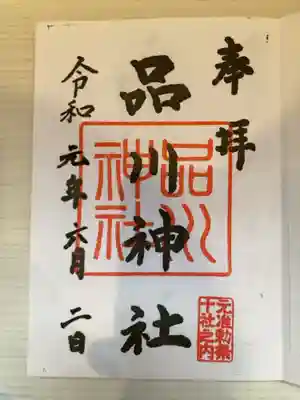 奉拝
品川神社
令和元年六月二日
品川神社
元准勅祭
十社之内